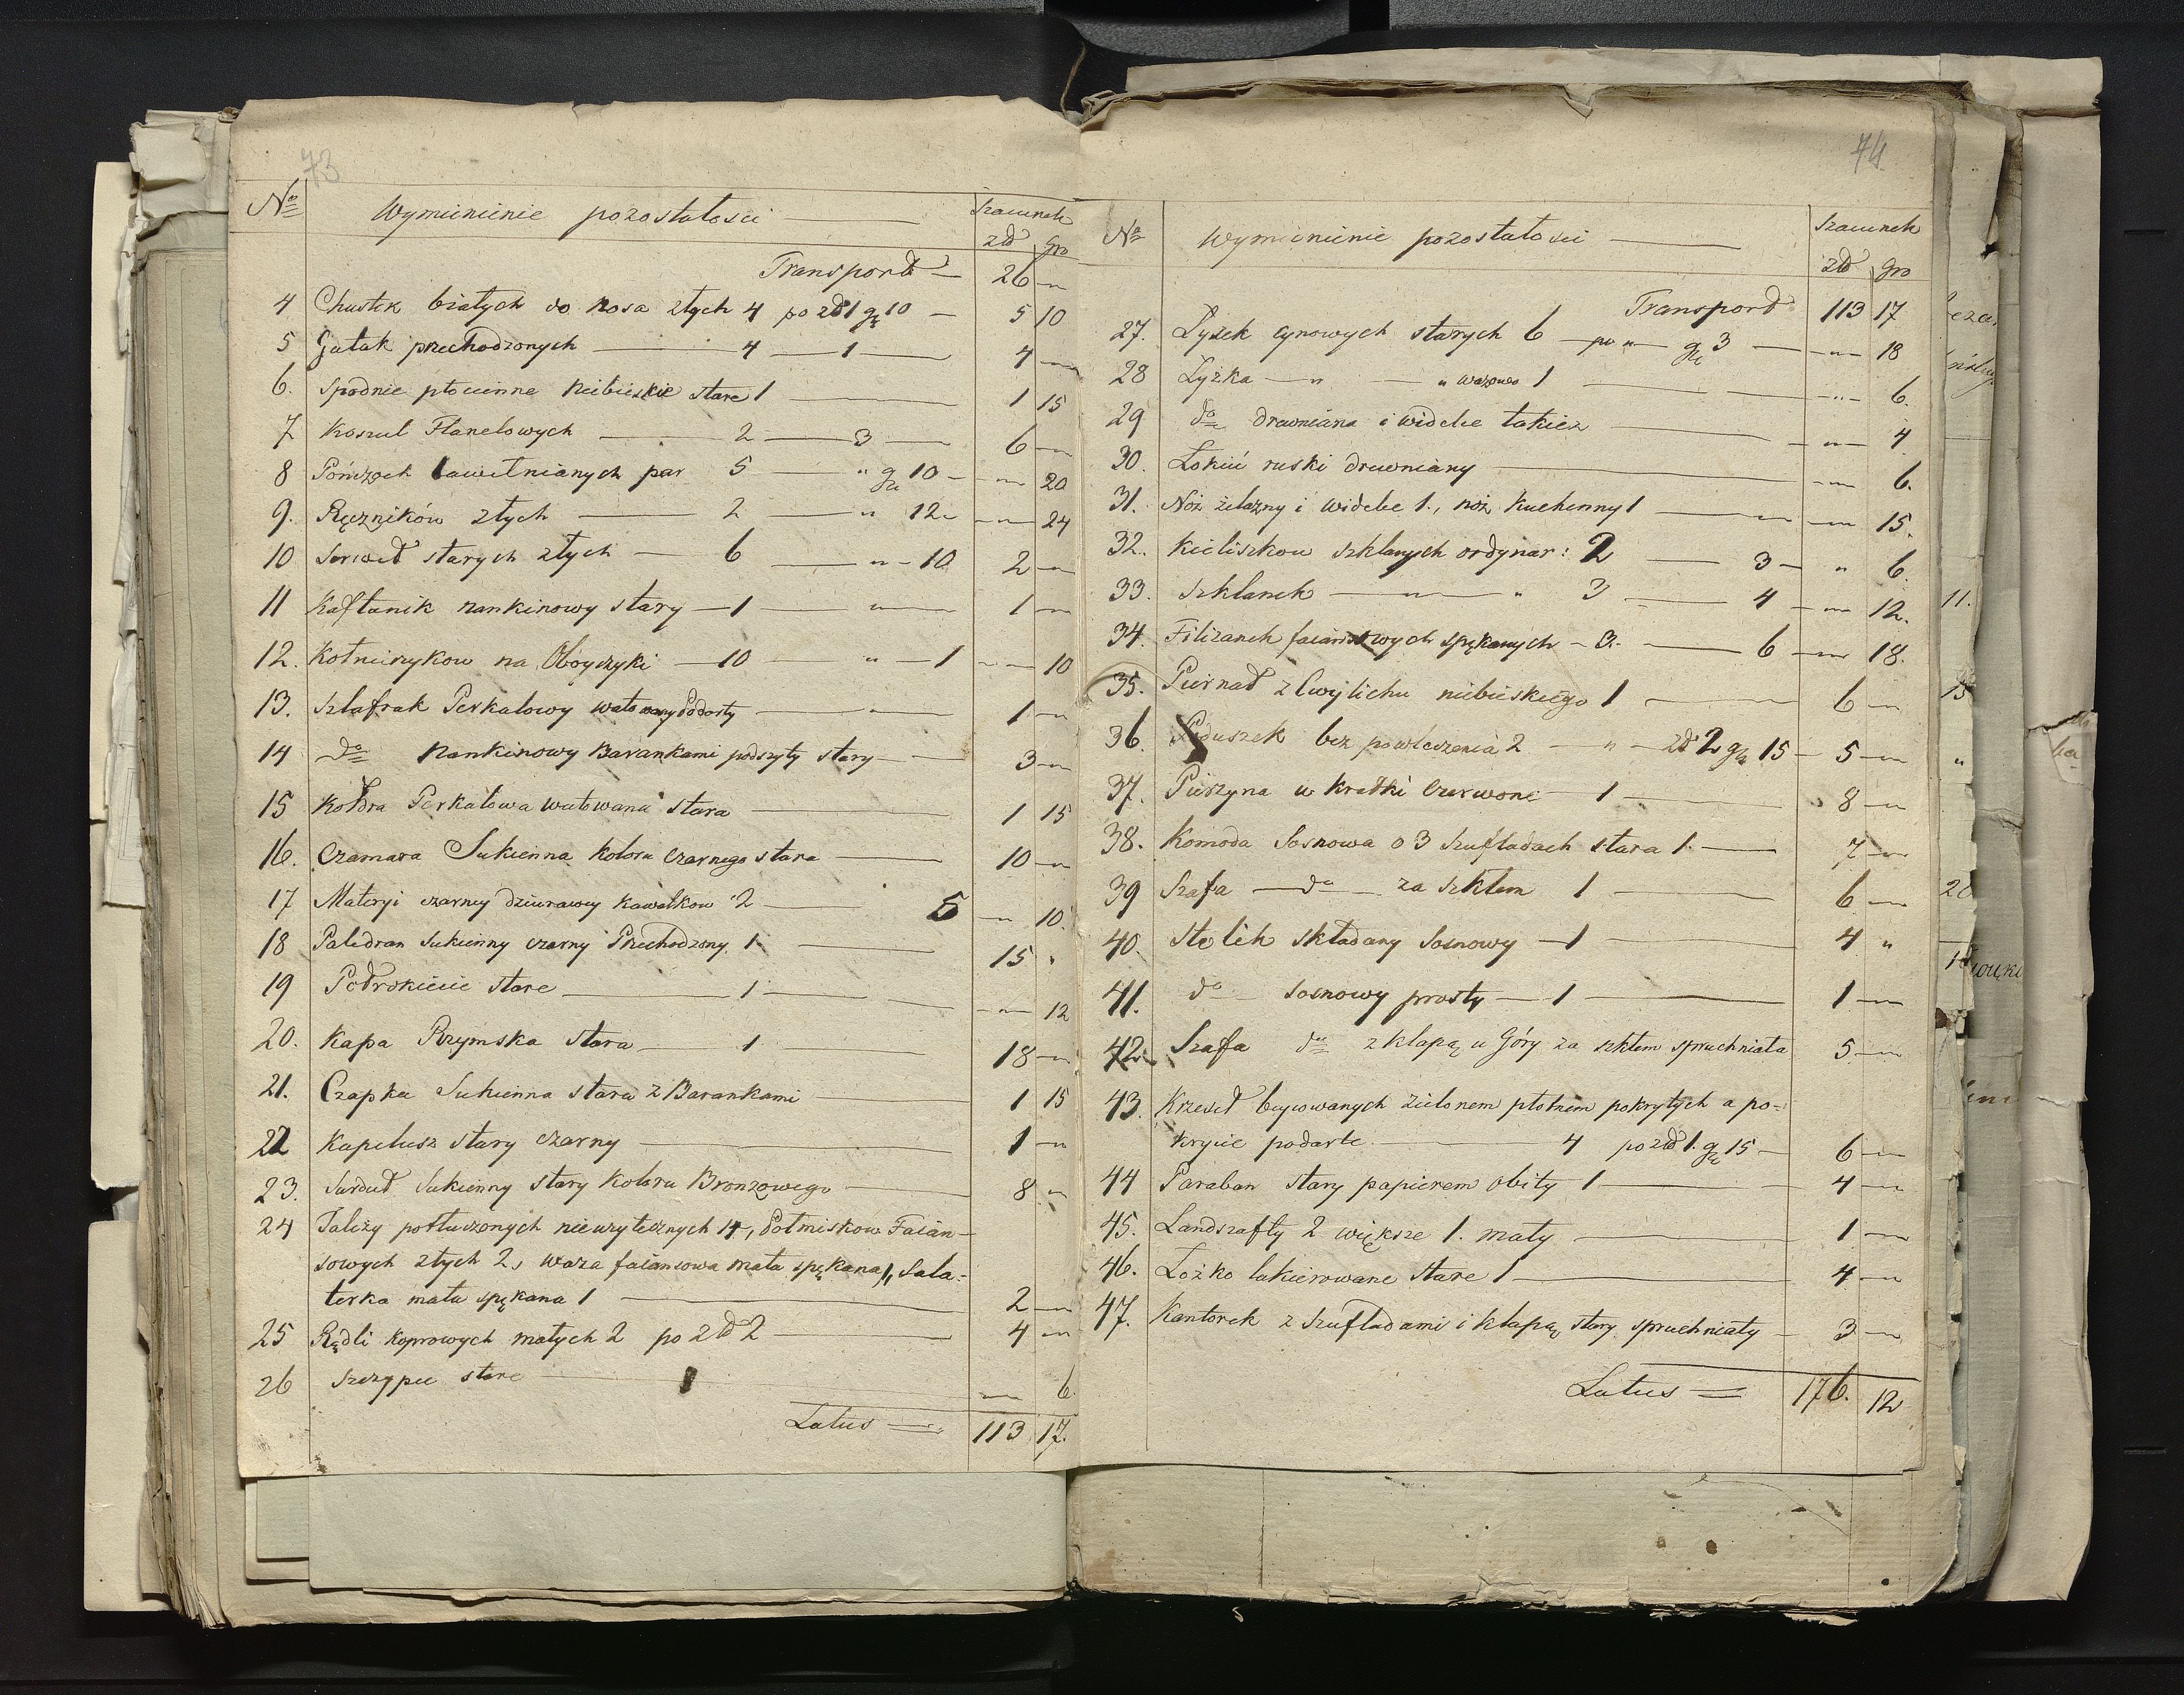 73
No Wymienienie pozostałości — Szacunek
zł gro
Transport — 26 —
4 Chustek białych do nosa złych 4 po zł 1 gr 10 — 5 10
5 Gatek przechodzonych — 4 — 1 — 4 —
6. Spodnie płócienne niebieskie stare 1 — 1 15
7 Koszul Flanelowych — 2 — 3 — 6 —
8 Pończoch bawełnianych par 5 — " gr 10 — — 20
9. Ręczników złych — 2 — " 12 — — 24
10 Serwet starych złych — 6 — " — 10 2 —
11 Kaftanik nankinowy stary — 1 — " — 1 —
12. Kołnierzykow na Oboyczyki — 10 — " — 1 — 10
13. Szlafrak Perkalowy watowany Podarty — " — 1 —
14 do Nankinowy Barankami podszyty stary — 3 —
15 Kołdra Perkalowa watowana stara — 1 15
16. Czamara Sukienna koloru czarnego stara — 10 —
17 Materyi czarney dziurawey kawałkow 2 — 5 — 10.
18 Paledran Sukienny czarny Przechodzony 1. — 15 "
19 Potrokienie stare — 1 — — 12
20. Kapa Rzymska stara — 1 — 18 —
21. Czapka Sukienna stara z Barankami — 1 15
22 Kapelusz stary czarny — 1 —
23. Surdut Sukienny stary koloru Bronzowego — 8 —
24 Talezy potłuczonych nieużytecznych 14, Połmiskow Faian-
sowych złych 2, waza faiansowa mała spękana 1, Sala=
terka mała spękana 1 — 2 —
25 Rądli koprowych małych 2 po zł 2 — 4 —
26 Szczypce stare — 1 — 6
Latus = 113 17.
74
No Wymienienie pozostałości — Szacunek
zł gro
Transport 113 17
27. Łyżek cynowych starych 6 — po " — gr 3 — — 18
28 Łyżka — " — " wazowa 1 — — " — 6.
29 do drewniana i widelec takiż — — " — 4
30. Łokieć ruski drewniany — — 6.
31. Nóż żelazny i widelec 1., nóż kuchenny 1 — — 15.
32. Kieliszkow szklanych ordynar: 2 — 3 — " 6.
33. Szklanek — " — " 3 — 4 — — 12.
34. Filiżanek faiansowych spękanych — 3. — 6 — — 18.
35. Piernat z Cwylichu niebieskiego 1 — 6 —
36. Poduszek bez powleczenia 2 — " — zł 2 gr 15 — 5 —
37. Pierzyna w kratki czerwone — 1 — 8 —
38. Komoda Sosnowa o 3 szufladach stara 1. — 7 —
39 Szafa — do — za szkłem 1 — 6 —
40. Stolik składany sosnowy — 1 — 4 "
41. do sosnowy prosty — 1 — 1 —
42. Szafa do z klapą u Góry za szkłem spruchniała 5 —
43. Krzeseł beycowanych zielonem płótnem pokrytych a po=
krycie podarte — 4 po zł 1. gr 15 — 6 —
44 Paraban stary papierem obity 1 — 4 —
45. Landszafty 2 większe 1. mały — 1 —
46. Łożko lakierowane stare 1 — 4 —
47. Kantorek z szufladami i klapą stary spruchniały — 3 —
Latus = 176. 12